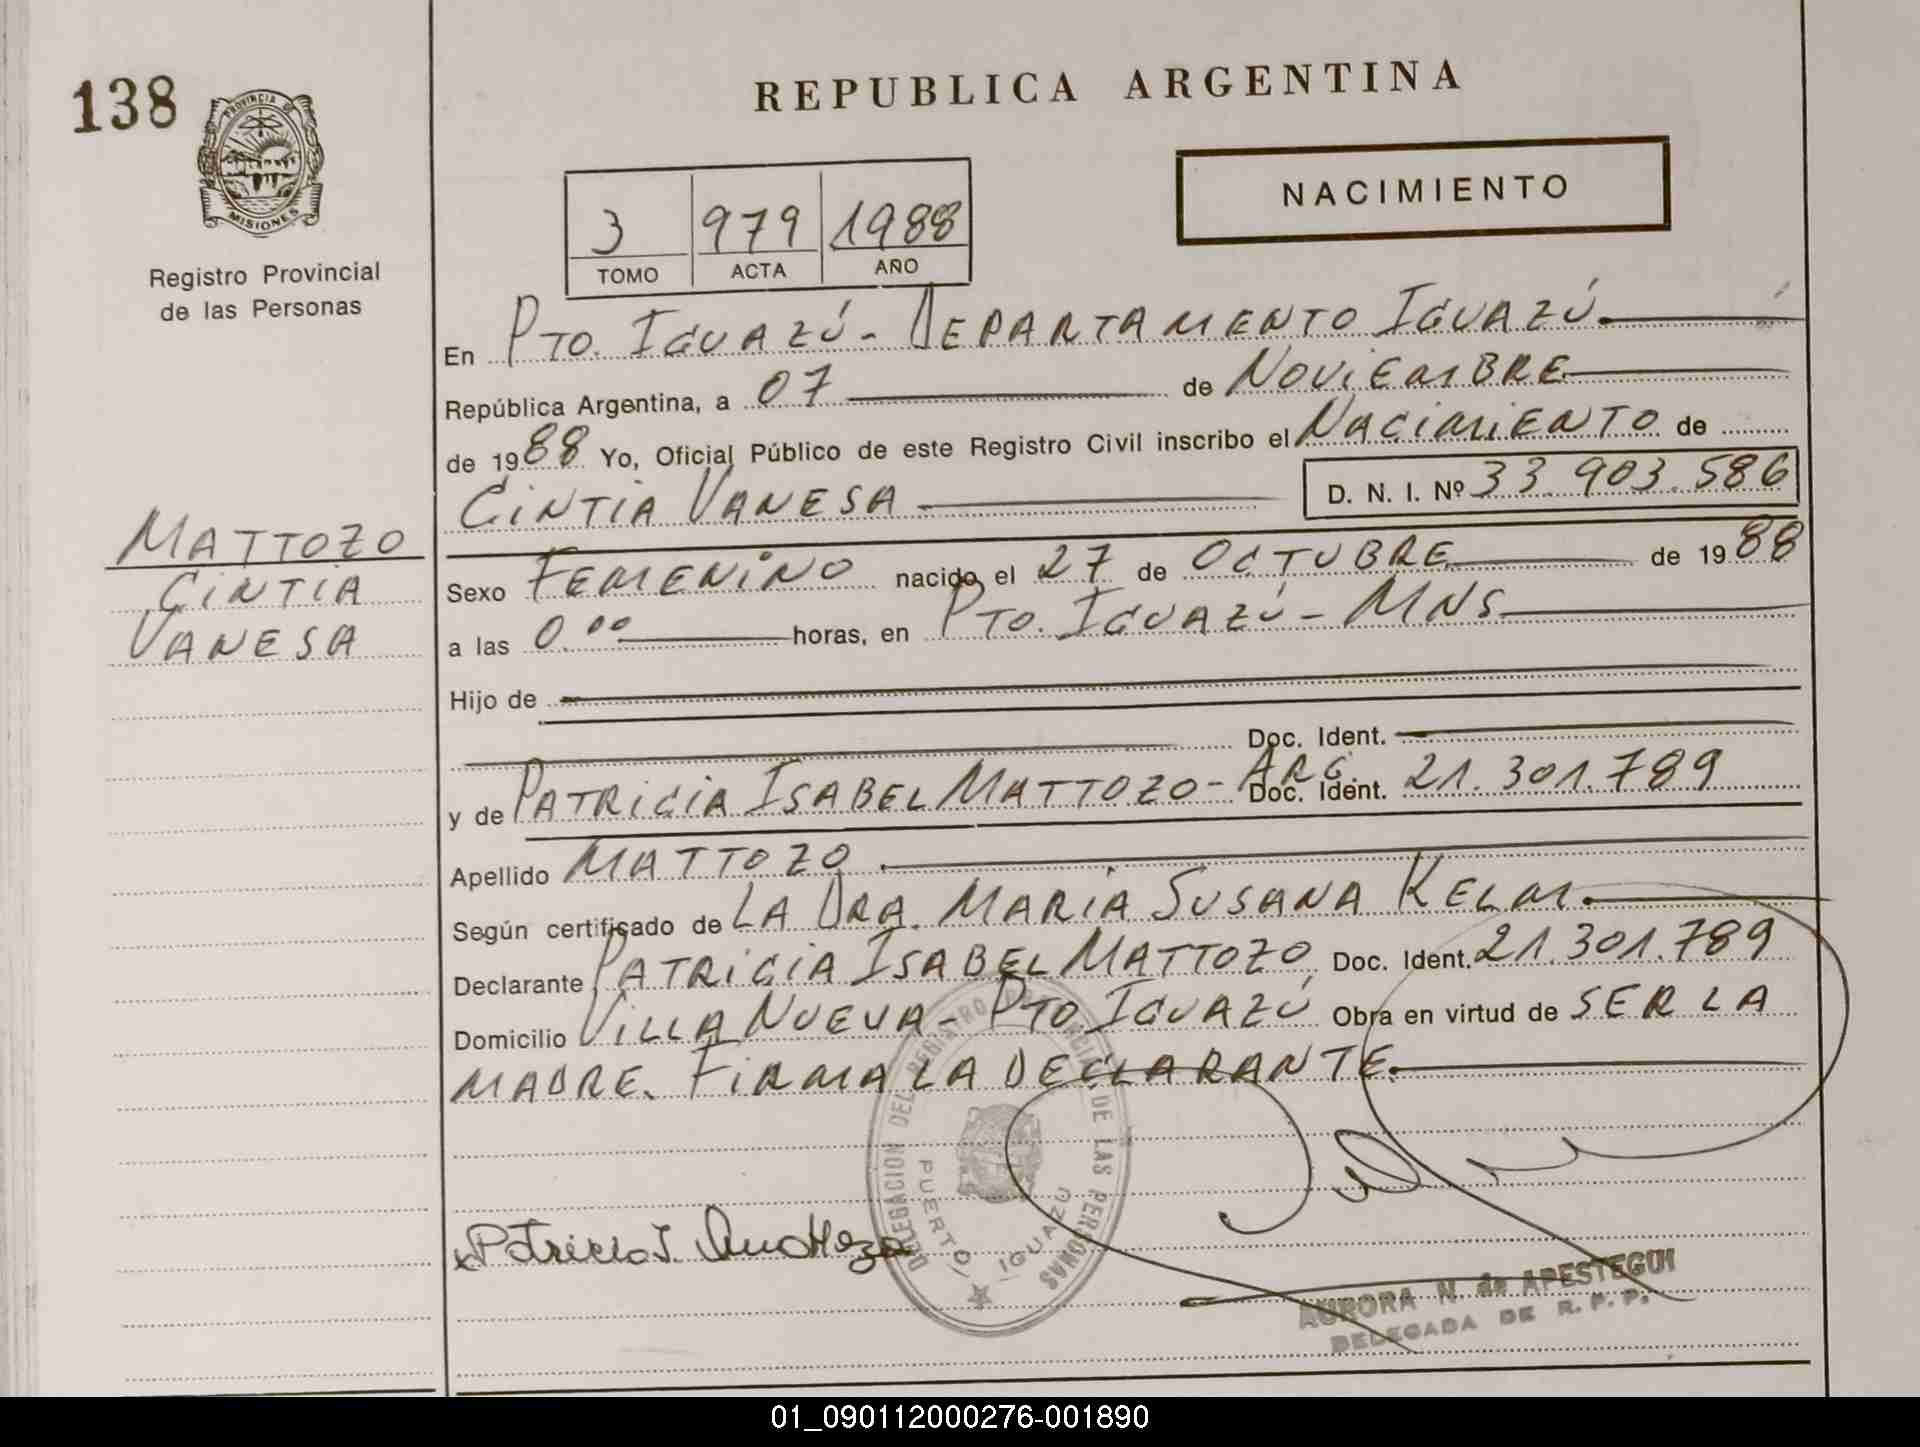 138
PROVINCIA DE
MISIONES
Registro Provincial
de las Personas
REPUBLICA ARGENTINA
NACIMIENTO
3 979 1988
TOMO ACTA AÑO
En PTO. IGUAZÚ - DEPARTAMENTO IGUAZÚ.
República Argentina, a 07 de NOVIEMBRE
de 1988 Yo, Oficial Público de este Registro Civil inscribo el NACIMIENTO de
CINTIA VANESA D. N. I. Nº 33.903.586
MATTOZO
CINTIA
VANESA
Sexo FEMENINO nacido el 27 de OCTUBRE de 1988
a las 0.00 horas, en PTO. IGUAZÚ - MNS
Hijo de
Doc. Ident.
y de PATRICIA ISABEL MATTOZO - ARG. Doc. Ident. 21.301.789
Apellido MATTOZO.
Según certificado de LA DRA. MARIA SUSANA KELM.
Declarante PATRICIA ISABEL MATTOZO Doc. Ident. 21.301.789
Domicilio VILLA NUEVA - PTO IGUAZÚ Obra en virtud de SER LA
MADRE. FIRMA LA DECLARANTE.
DELEGACION DEL REGISTRO PROVINCIAL DE LAS PERSONAS
PUERTO IGUAZU
Patricia I. Mattozo
AURORA N. de APESTEGUI
DELEGADA DE R. P. P.
01_090112000276-001890